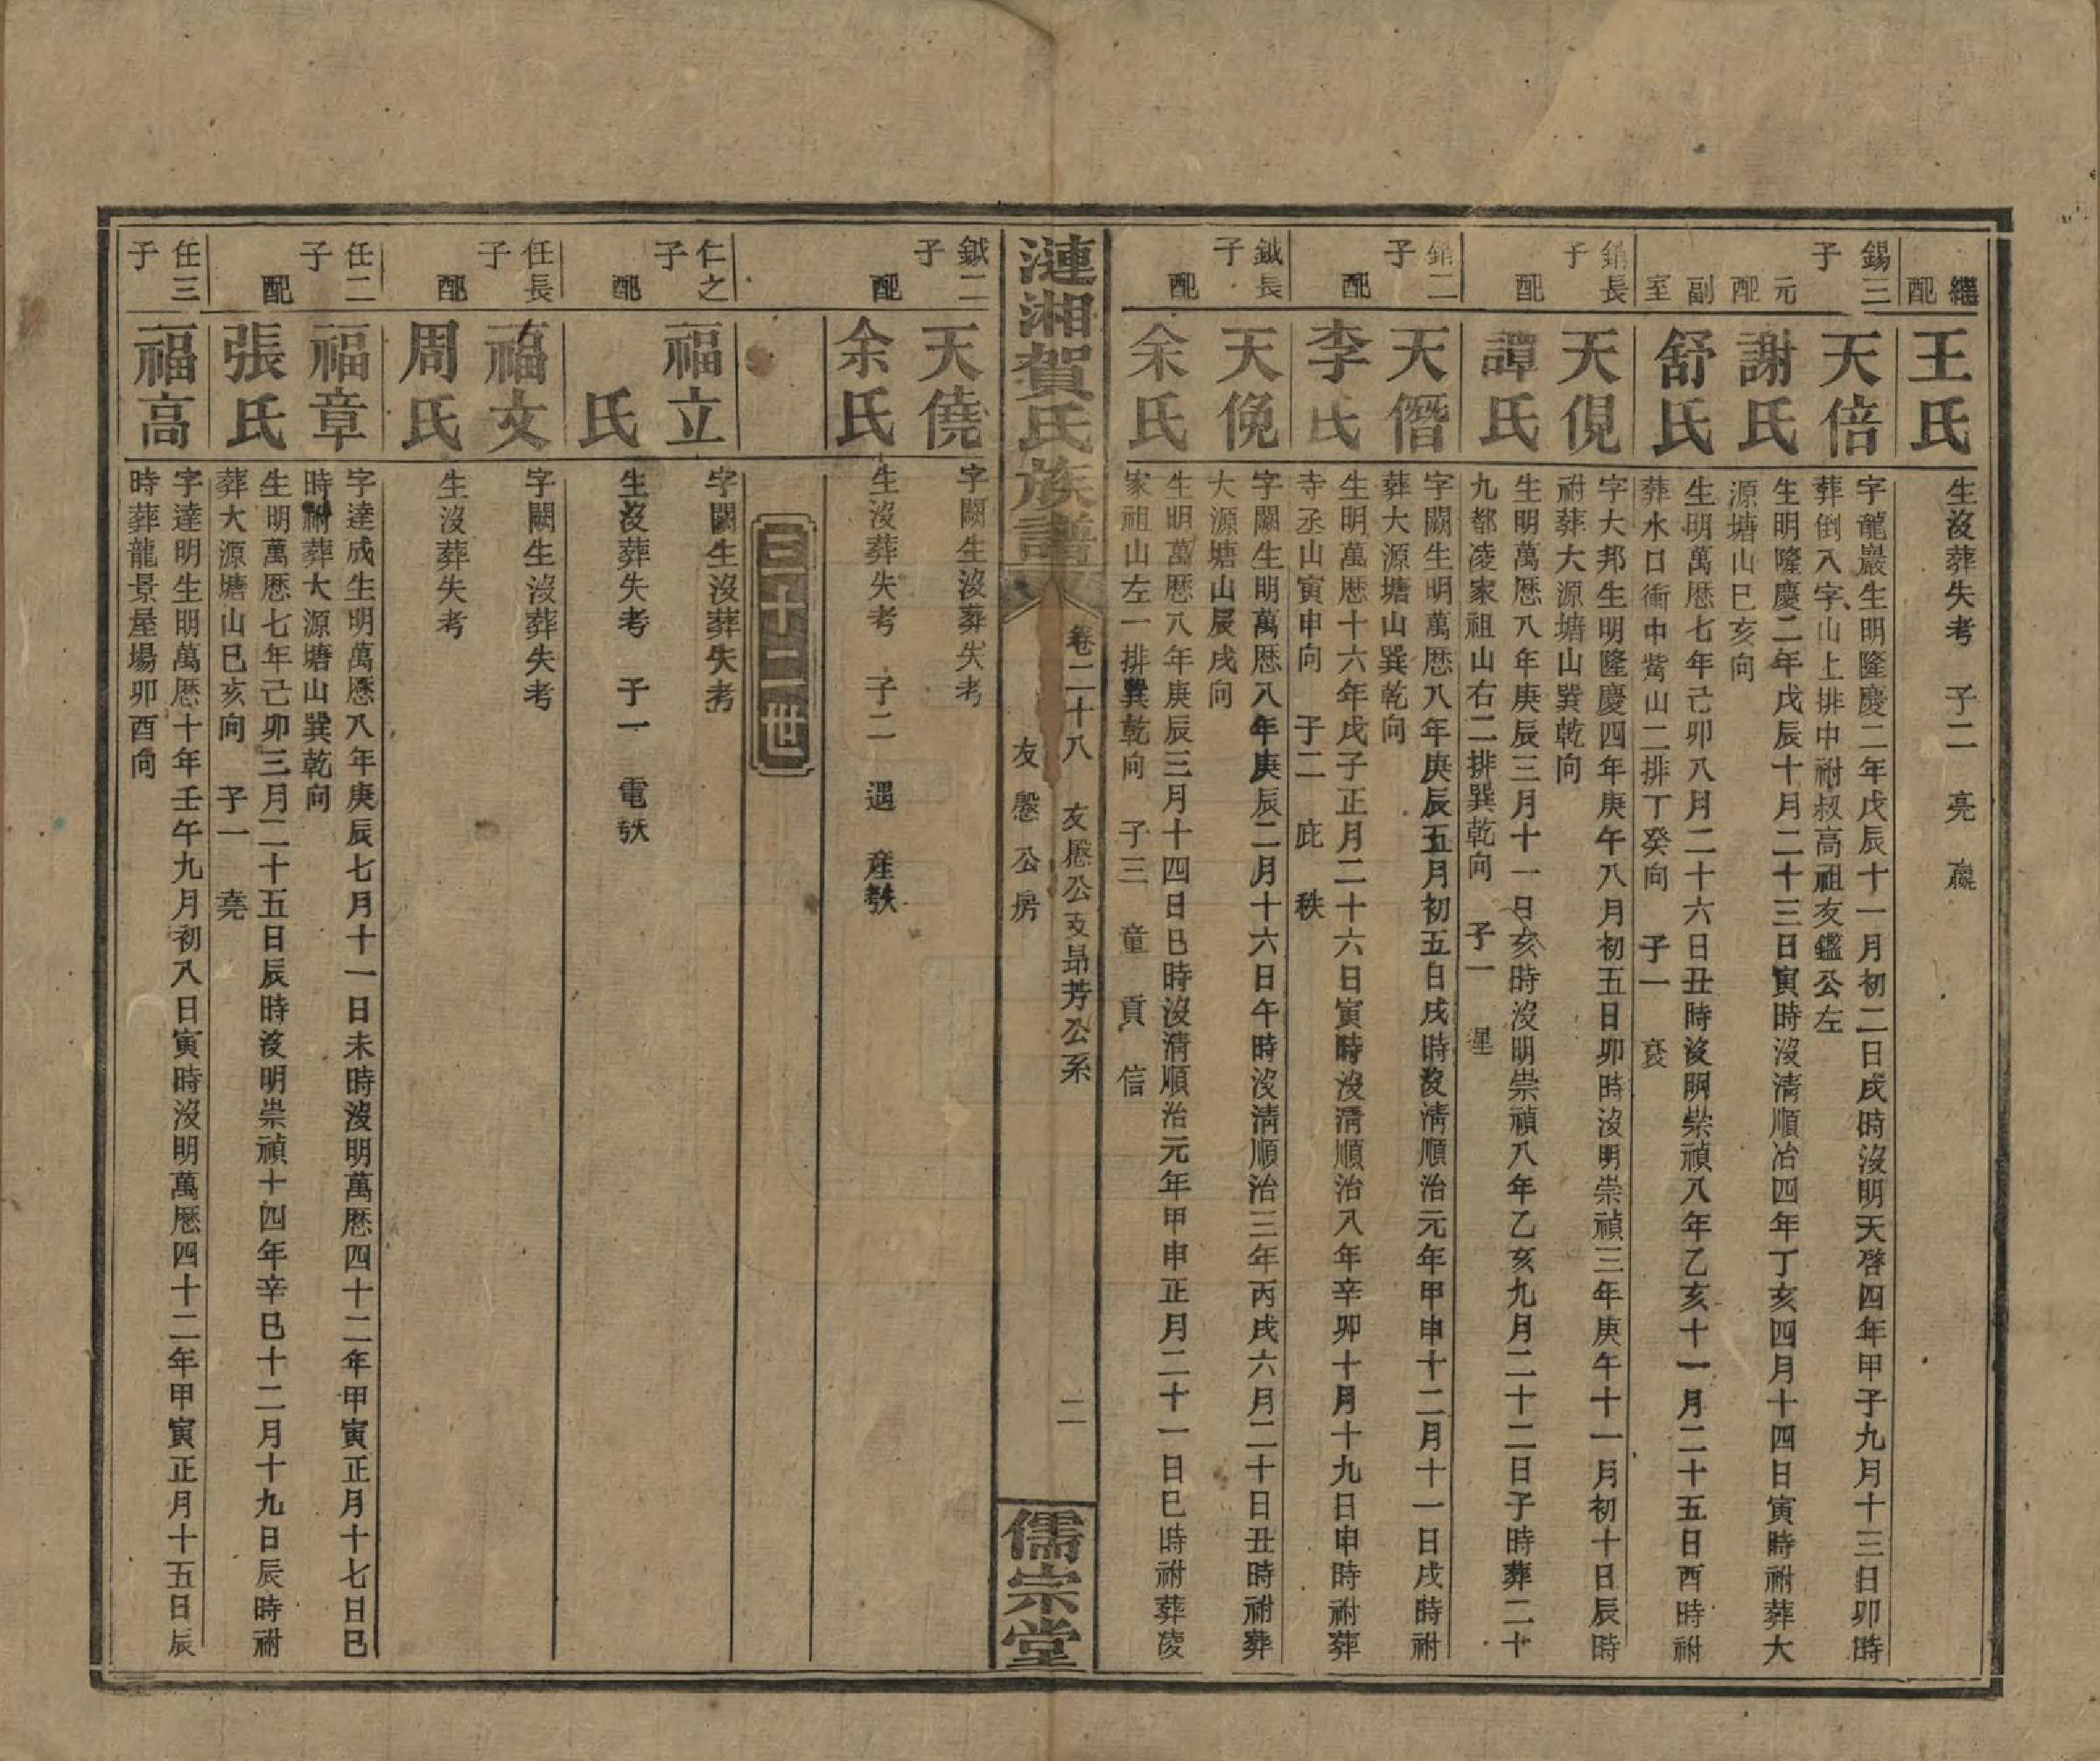 繼配
王氏
生沒葬失考 子二 亮 嬴
錫三子
天倍
字龍巖生明隆慶二年戊辰十一月初二日戌時沒明天啓四年甲子九月十三日卯時
葬倒入字山上排中祔叔高祖友鑑公左
元配
謝氏
生明隆慶二年戊辰十月二十三日寅時沒清順治四年丁亥四月十四日寅時祔葬大
源塘山巳亥向
副室
舒氏
生明萬歷七年己卯八月二十六日丑時沒明崇禎八年乙亥十一月二十五日酉時祔
葬水口衝中嘴山二排丁癸向 子一 袞
銷長子
天俔
字大邦生明隆慶四年庚午八月初五日卯時沒明崇禎三年庚午十一月初十日辰時
祔葬大源塘山巽乾向
配
譚氏
生明萬歷八年庚辰三月十一日亥時沒明崇禎八年乙亥九月二十二日子時葬二十
九都凌家祖山右二排巽乾向 子一 遲
銷二子
天僭
字闕生明萬歷八年庚辰五月初五日戌時沒淸順治元年甲申十二月十一日戌時祔
葬大源塘山巽乾向
配
李氏
生明萬歷十六年戊子正月二十六日寅時沒淸順治八年辛卯十月十九日申時祔葬
寺丞山寅申向 子二 庇 秩
鉞長子
天俛
字闕生明萬歷八年庚辰二月十六日午時沒淸順治三年丙戌六月二十日丑時祔葬
大源塘山辰戌向
配
余氏
生明萬歷八年庚辰三月十四日巳時沒淸順治元年甲申正月二十一日巳時祔葬凌
家祖山左一排巽乾向 子三 童 貢 信
漣湘賀氏族譜
卷二十八 友慇公支昻芳公系
友慇公房
二
儒宗堂
鉞二子
天僥
字闕生沒葬失考
配
余氏
生沒葬失考 子二 遇 產歿
三十二世
仁之子
福立
字闕生沒葬失考
配
氏
生沒葬失考 子一 電歿
任長子
福文
字闕生沒葬失考
配
周氏
生沒葬失考
任二子
福章
字達成生明萬歷八年庚辰七月十一日未時沒明萬歷四十二年甲寅正月十七日巳
時祔葬大源塘山巽乾向
配
張氏
生明萬歷七年己卯三月二十五日辰時沒明崇禎十四年辛巳十二月十九日辰時祔
葬大源塘山巳亥向 子一 堯
任三子
福高
字達明生明萬歷十年壬午九月初八日寅時沒明萬歷四十二年甲寅正月十五日辰
時葬龍景屋場卯酉向